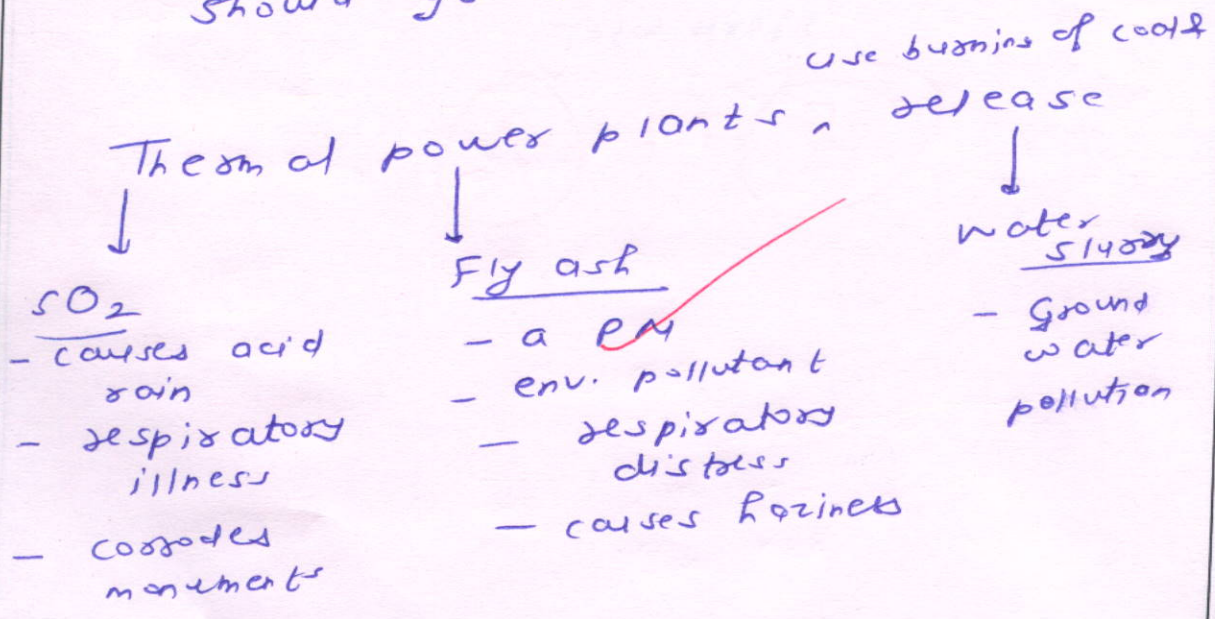 should
use burning of coal &
Thermal power plants ^ release
SO2
- causes acid
rain
- respiratory
illness
- corrodes
monuments
Fly ash
- a PM
- env. pollutant
- respiratory
distress
- causes haziness
water
slurry
- Ground
water
pollution